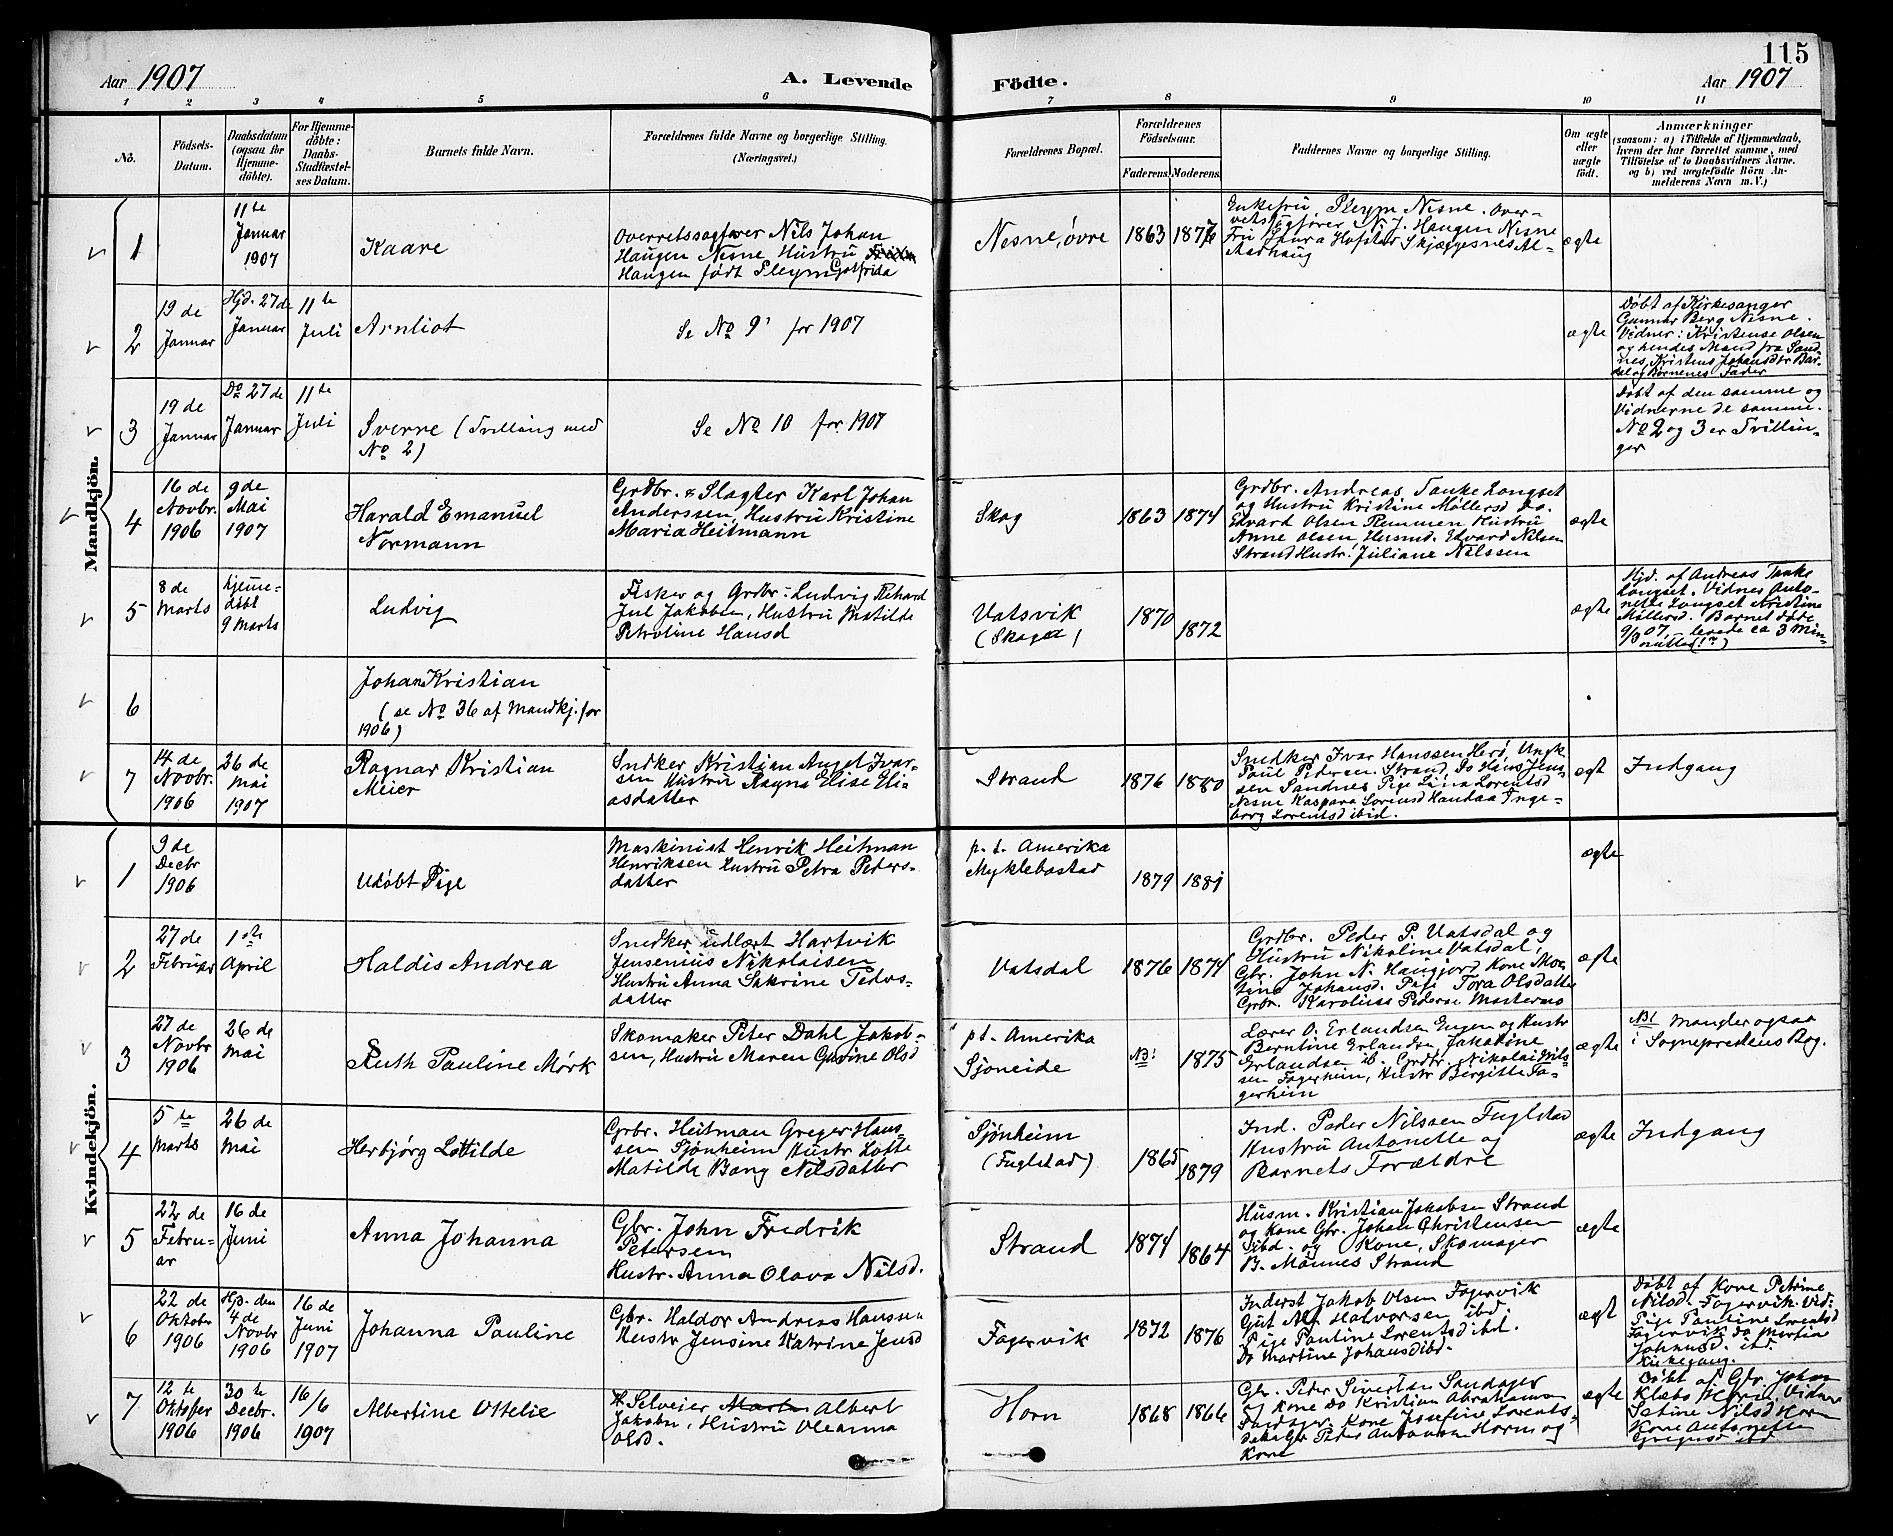 115
Aar 1907
A. Levende
Födte.
Aar 1907
1 2 3 4 5 6 7 8 9 10 11
No.
Födsels-
Datum.
Daabsdatum
(ogsaa for
Hjemme-
döbte).
For Hjemme-
döbte:
Daabs-
Stadfæstel-
ses Datum.
Barnets fulde Navn.
Forældrenes fulde Navne og borgerlige Stilling.
(Næringsvei.)
Forældrenes Bopæl.
Forældrenes
Födselsaar.
Faderens. Moderens.
Faddernes Navne og borgerlige Stilling.
Om ægte
eller
uægte
födt.
Anmærkninger
(saasom: a) i Tilfælde af Hjemmedaab,
hvem der har forrettet samme, med
Tilföielse af to Daabsvidners Navne.
og b) ved uægtefödte Börn An-
melderens Navn m.V.)
Mandkjön.
1
11te
Januar
1907
Kaare
Overretssagfører Nils Johan
Haugen Nesne Hustru
Haugen født Pleym
Nesne, øvre
1863
Enkefru Pleym Nesne. Over-
retssagfører N. J. Haugen Nesne
ægte
2
19 de
Januar
Hjd. 27 de
Januar
11te
Juli
Arnliot
Se No 9 for 1907
ægte
Døbt af Kirkesanger
Gunnar Berg Nesne.
Vidner: Kristense Olsen
og hendes Mand fra Sand-
nes,
og Barnenes Fader
3
19 de
Januar
Do 27 de
Januar
11te
Juli
Sverre (Tvilling med
No 2)
Se No 10 for 1907
Døbt af den samme og
Vidnerne de samme.
No 2 og 3 er Tvillin-
ger
4
16 de
Novbr.
1906
9 de
Mai
1907
Harald Emanuel
Normann
Grdbr. & Slagter Karl Johan
Anderssen, Hustru Kristine
Maria Heitmann
Skog
1863 1874
Grdbr. Andreas Tanke Langset
og Hustru Kristine Møllersd Do.
Edvard Olsen Hustru
Anne Olsen Edvard Nilsen
Strand Hustr. Juliane Nilssen
ægte
5
8 de
Marts
hjemme-
døbt
9 Marts
Ludvig
Fisker og Grdbr: Ludvig Rikard
Jul Jakobsen, Hustru Matilde
Petroline Hansd
Vatsvik
1870 1872
ægte
Hjd. af Andreas Tanke
Langset. Vidner Anto-
nette Langset Kristine
Møllersd. Barnet døde
9/3 07, levede ca 3 Min-
6
Johan Kristian
(se No 36 af Mandkj. for
1906)
7
14 de
Novbr.
1906
26 de
Mai
1907
Ragnar Kristian
Meier
Sndker Kristian Angel Ivar-
sen Hustru Ragna Elise Eli-
asdatter
Strand
1876 1880
Snedker Ivar Hanssen Herø, Ungk
Paul Pedersen Strand, Do Hans Jens-
sen Sandnes Pige Lina Lorentsd
Nesne Kaspara Lorensd Handaa Inge-
borg Lorentsd ibid.
ægt
Indgang
Kvindekjön.
1
9 de
Decbr
1906
Udøbt Pige
Maskinist Henrik Heitman
Henriksen Hustru Petra Peders-
datter
p. t. Amerika
Myklebostad
1879 1881
ægte
2
27 de
Februar
1ste
April
Haldis Andrea
Snedker udlært Hartvik
Jensenius Nikolaisen
Hustru Anna Sakrine Peders-
datter
Vatsdal
1876 1874
Grdbr. Peder P. Vatsdal og
Hustru Nikoline Vatsdal,
Gbr. John N. Haugjord Kone
Johansd. Pige Tora Olsdatte
Grbr. Karolius Pedersen
ægte
3
27 de
Novbr
1906
26 de
Mai
Ruth Pauline Mørk
Skomaker Peter Dahl Jakob-
sen, Hustru Maren Gurine Olsd
pt. Amerika
Sjoneide
NB! 1875
Lærer O. Erlandsen Engen og Hustr
Berntine Erlandsen Jakobine
Erlandsen ib. Grdbr. Nikolai Nils-
sen Fagerheim, Hustr Birgitte Fa-
gerheim
ægte
NB! Mangler ogsaa
i Sogneprestens Bog.
4
5 te
Marts
26 de
Mai
Herbjørg Lottilde
Grbr. Heitman Greger Hans-
sen Sjønheim Hustr Lotte
Matilde Bang Nilsdatter
Sjønheim
(Fuglstad)
1865 1879
Ind. Peder Nilssen Fuglstad
Hustru Antonette og
Barnets Forældre
ægte
Indgang
5
22 de
Febru-
ar
16 de
Juni
Anna Johanna
Gbr. John Fredrik
Petersen
Hustr. Anna Olava Nilsd.
Strand
1874 1864
Husm. Kristian Jakobsen Strand
og Kone Gbr. Johan Christensen
ibd. og Kone, Skomager
B. Monnes Strand
ægte
6
22 de
Oktober
1906
Hjd. den
4 de
Novbr
1906
16 de
Juni
1907
Johanna Pauline
Gbr. Haldor Andreas Hanssen
Hustr Jensine Katrine Jensd
Fagervik
1872 1876
Inderst Jakob Olsen Fagervik
Gut Alf Halvorsen ibd.
Pige Pauline Lorentsd ibd.
Do Martine Johansd ibd.
ægt
Døbt af Kone Petrine
Nilsd. Fagervik. Vid:
Pige Pauline Lorentsd
Fagervik Do Martine
Johansd. ibd.
Kirkegang.
7
12 te
Oktober
1906
30 te
Decbr.
1906
16/6
1907
Albertine Ottelie
Selveier Albert
Jakobsn, Hustru Oleanna
Olsd.
Horn
1868 1866
Gbr. Peder Sivertsen Sandager
og Kone Do Kristian Abrahamsen
Sandager. Kone Josefine Lorents-
Gbr Peder Antonsen Horn og
Kone
ægte
Døbt af Gbr. Johan
Klæbo Horn. Vidner
Setine Nilsd Horn
Kone Antonette
ibd